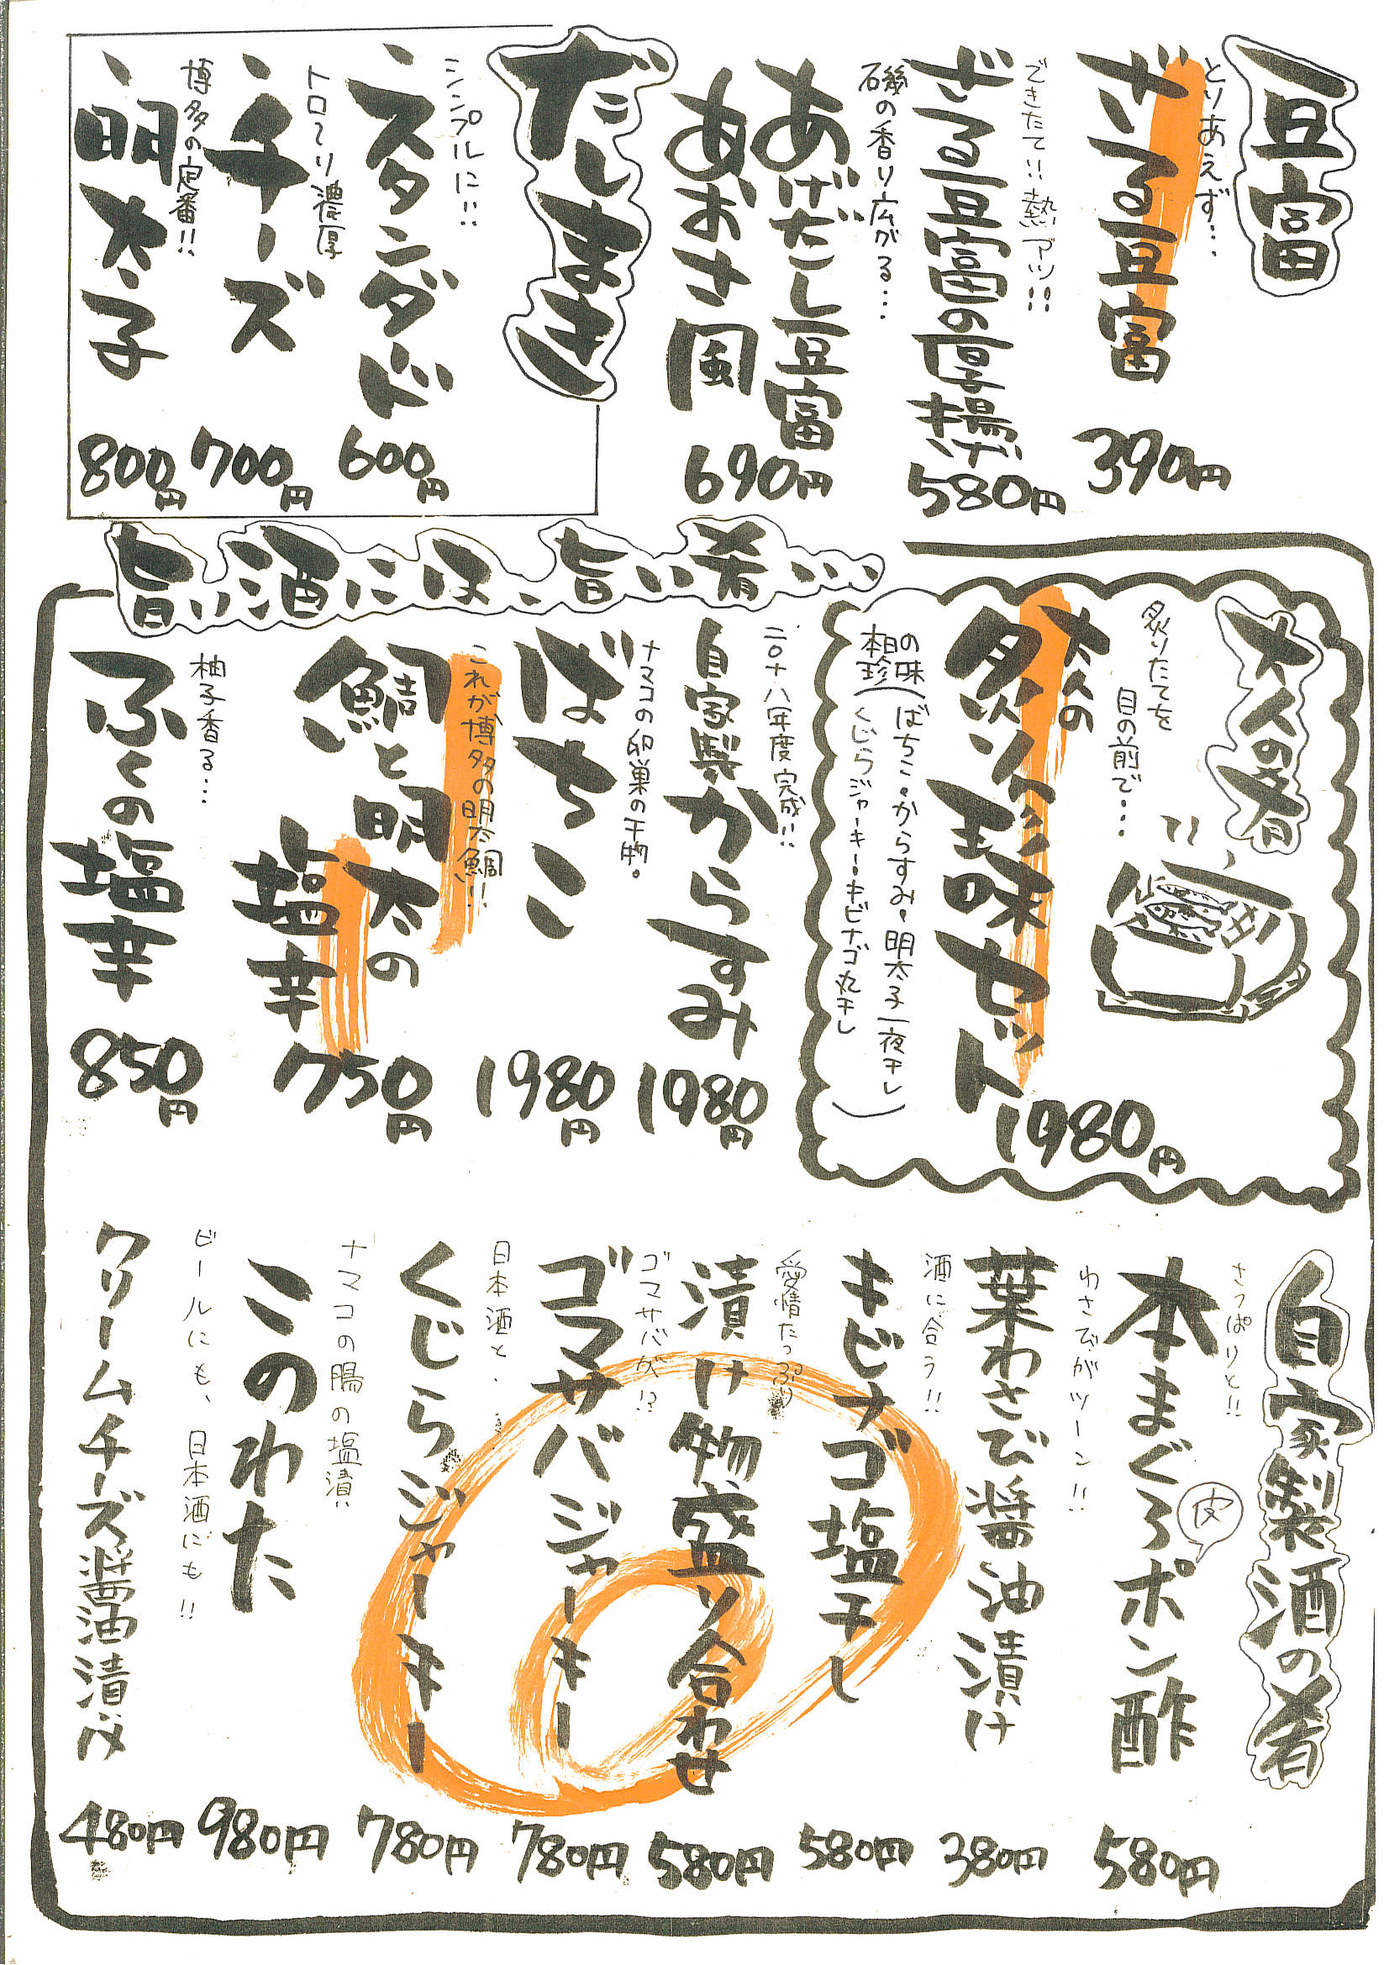 豆富
とりあえず…
ざる豆富
390円
できたて!!熱アツ!!
ざる豆富の厚揚げ
580円
磯の香り広がる…
あげだし豆富
あおさ風
690円
だしまき
シンプルに!!
スタンダード
600円
トロ〜リ濃厚
チーズ
700円
博多の定番!!
明太子
800円
旨い酒には、旨い肴…
大人の肴
炙りたてを
目の前で…
大人の
炙り珍味セット
1980円
(ばちこ・からすみ・明太子一夜干し
くじらジャーキーキビナゴ丸干し)
日本の珍味
二〇十八年度完成!!
自家製からすみ
1980円
ナマコの卵巣の干物。
ばちこ
1980円
これが博多の明太鯛!!
鯛と明太の
塩辛
750円
柚子香る…
ふくの塩辛
850円
自家製酒の肴
さっぱりと!!
本まぐろポン酢
皮
580円
わさびがツーン!!
葉わさび醤油漬け
380円
酒に合う!!
キビナゴ塩干し
580円
愛情たっぷり
漬け物盛り合わせ
580円
ゴマサバが!?
ゴマサバジャーキー
780円
日本酒と、
くじらジャーキー
780円
ナマコの腸の塩漬け
このわた
980円
ビールにも、日本酒にも!!
クリームチーズ醤油漬け
480円